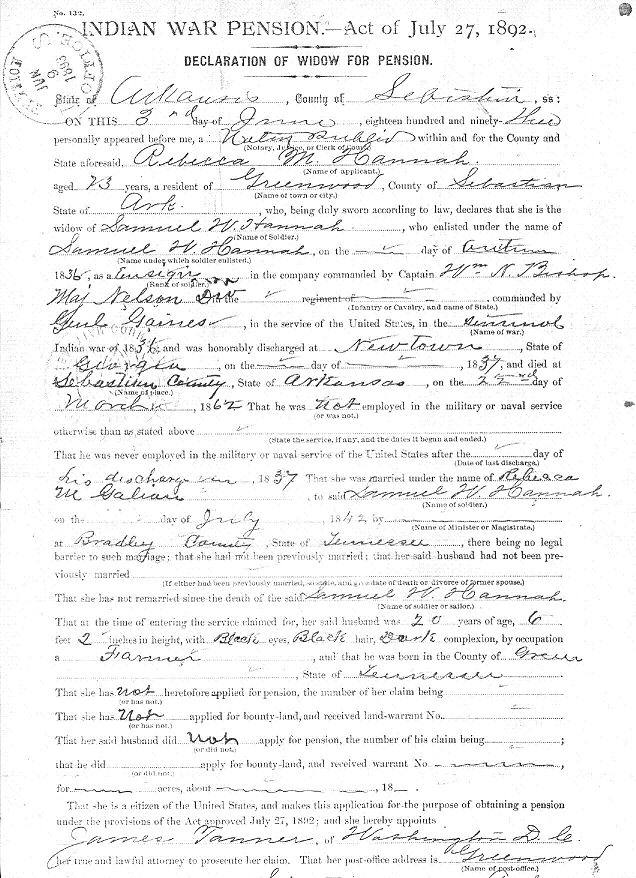 No. 132.
INDIAN WAR PENSION.—Act of July 27, 1892.
DECLARATION OF WIDOW FOR PENSION.
State of Arkansas, County of Sebastian, ss:
ON THIS 3rd day of June, eighteen hundred and ninety-three
personally appeared before me, a Notary Public within and for the County and
(Notary, Justice, or Clerk of Court)
State aforesaid, Rebecca M. Hannah.
(Name of applicant.)
aged 73 years, a resident of Greenwood, County of Sebastian
(Name of town or city.)
State of Ark., who, being duly sworn according to law, declares that she is the
widow of Samuel W. Hannah, who enlisted under the name of
(Name of Soldier.)
Samuel W. Hannah, on the day of
(Name under which soldier enlisted.)
1836, as a ensign in the company commanded by Captain Wm N. Bishop.
(Rank of soldier.)
Maj Nelson the regiment of, commanded by
(Infantry or Cavalry, and name of State.)
Genl Gaines, in the service of the United States, in the
(Name of war.)
Indian war of 1836 and was honorably discharged at Newtown, State of
Georgia, on the day of, 1837, and died at
Sebastian County, State of Arkansas, on the 22nd day of
(Name of place.)
March, 1862 That he was not employed in the military or naval service
(or was not.)
otherwise than as stated above
(State the service, if any, and the dates it began and ended.)
That he was never employed in the military or naval service of the United States after the day of
(Date of last discharge.)
his discharge in, 1837 That she was married under the name of Rebecca
M, to said Samuel W. Hannah.
(Name of soldier.)
on the day of July, 1842 by
(Name of Minister or Magistrate.)
at Bradley County, State of Tennessee, there being no legal
barrier to such marriage; that she had not been previously married; that her said husband had not been pre-
viously married
(If either had been previously married, so state, and give date of death or divorce of former spouse.)
That she has not remarried since the death of the said Samuel W. Hannah
(Name of soldier or sailor.)
That at the time of entering the service claimed for, her said husband was 20 years of age, 6
feet 2 inches in height, with Black eyes, Black hair, Dark complexion, by occupation
a Farmer, and that he was born in the County of Green
, State of Tennessee
That she has not heretofore applied for pension, the number of her claim being
(or has not.)
That she has Not applied for bounty-land, and received land-warrant No.
(or has not.)
That her said husband did Not apply for pension, the number of his claim being ;
(or did not.)
that he did apply for bounty-land, and received warrant No ,
(or did not.)
for acres, about , 18 .
That she is a citizen of the United States, and makes this application for the purpose of obtaining a pension
under the provisions of the Act approved July 27, 1892; and she hereby appoints
James Tanner, of Washington D.C.
her true and lawful attorney to prosecute her claim. That her post-office address is Greenwood
(Name of post-office.)